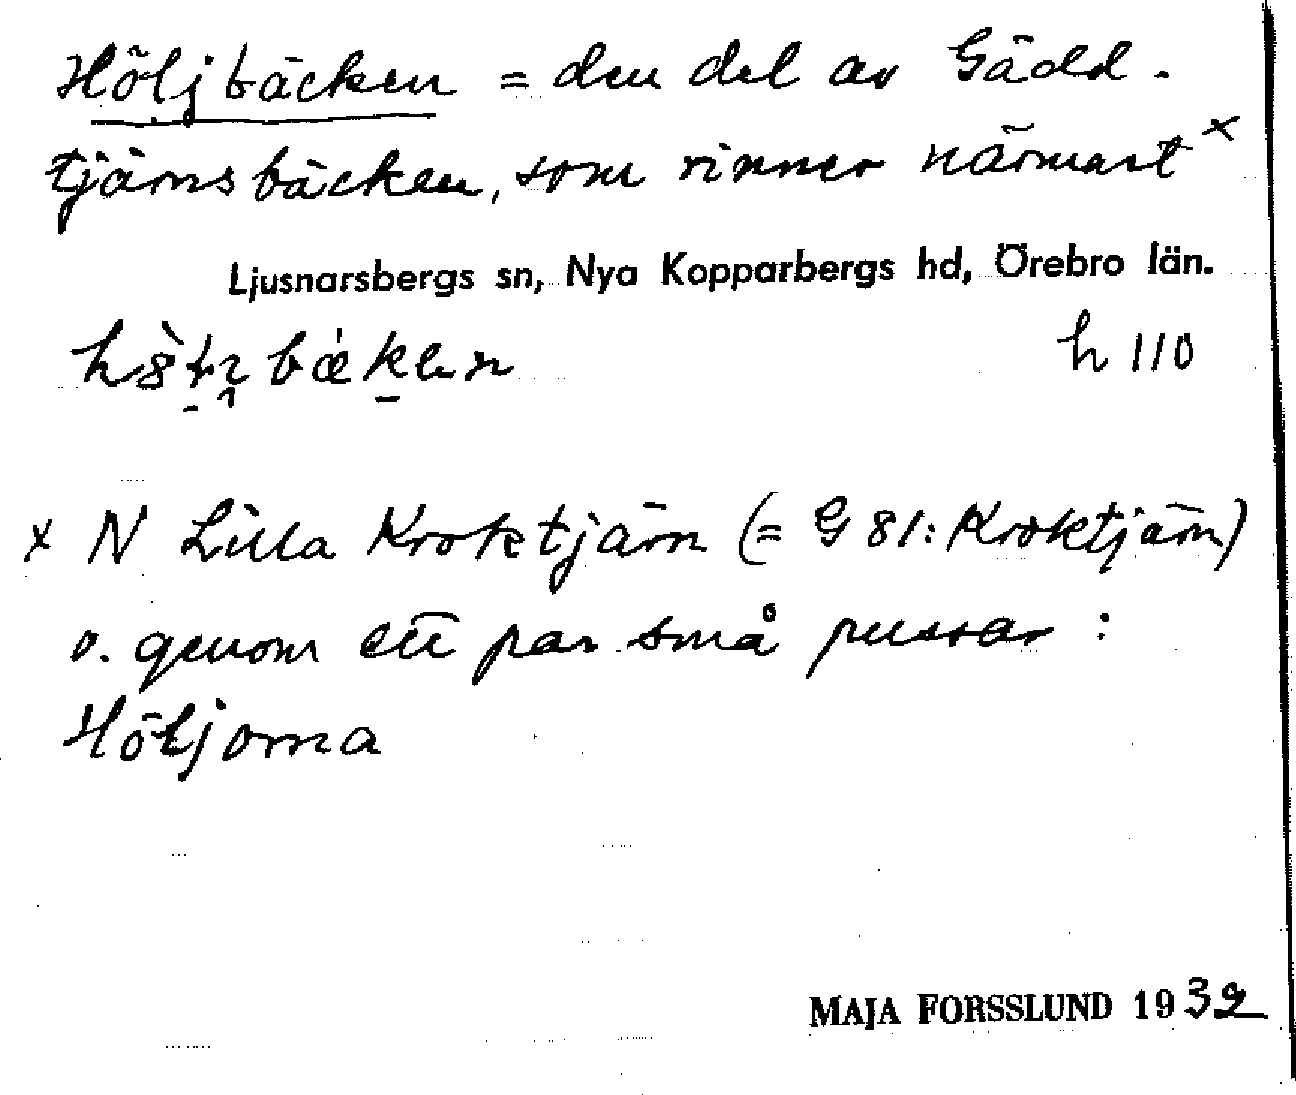 Höljbäcken = den del av Gädd-
tjärnsbäcken, som rinner närmast x
Ljusnarsbergs sn, Nya Kopparbergs hd, Örebro län.
h 110
x N Lilla Kroktjärn (= G 81: Kroktjärn)
o. genom ett par små pussar:
Höljorna
MAJA FORSSLUND 1932